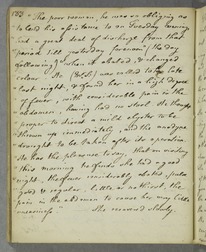 133 "The poor woman, he was so obliging as
to lend his assistance to on Tuesday evening
had a great deal of discharge from that
period till yesterday forenoon (the day
following) when it abated, & changed
colour. He (Mr) was called to her late
last night, & found her in a high degree
of fever, with considerable pain in the
abdomen, having had no stool. He thought
proper to direct a mild clyster to be
thrown up immediately, and the anodyne
draught to be taken after its operation.
He has the pleasure today, that on visiting
this morning he finds she had a good
night, the fever considerably abated, pulse
good & regular, little or no thirst, the
pain in the abdomen to cause her very little
uneasiness" She recovered slowly.